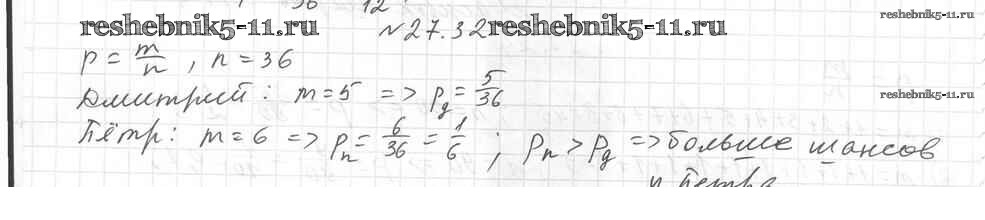 reshebnik5-11.ru №27.32 reshebnik5-11.ru reshebnik5-11.ru
p = m/n , n = 36
Дмитрий: m = 5 => pд = 5/36 reshebnik5-11.ru
Пётр: m = 6 => pп = 6/36 = 1/6 ; pп > pд => больше шансов
у Петра